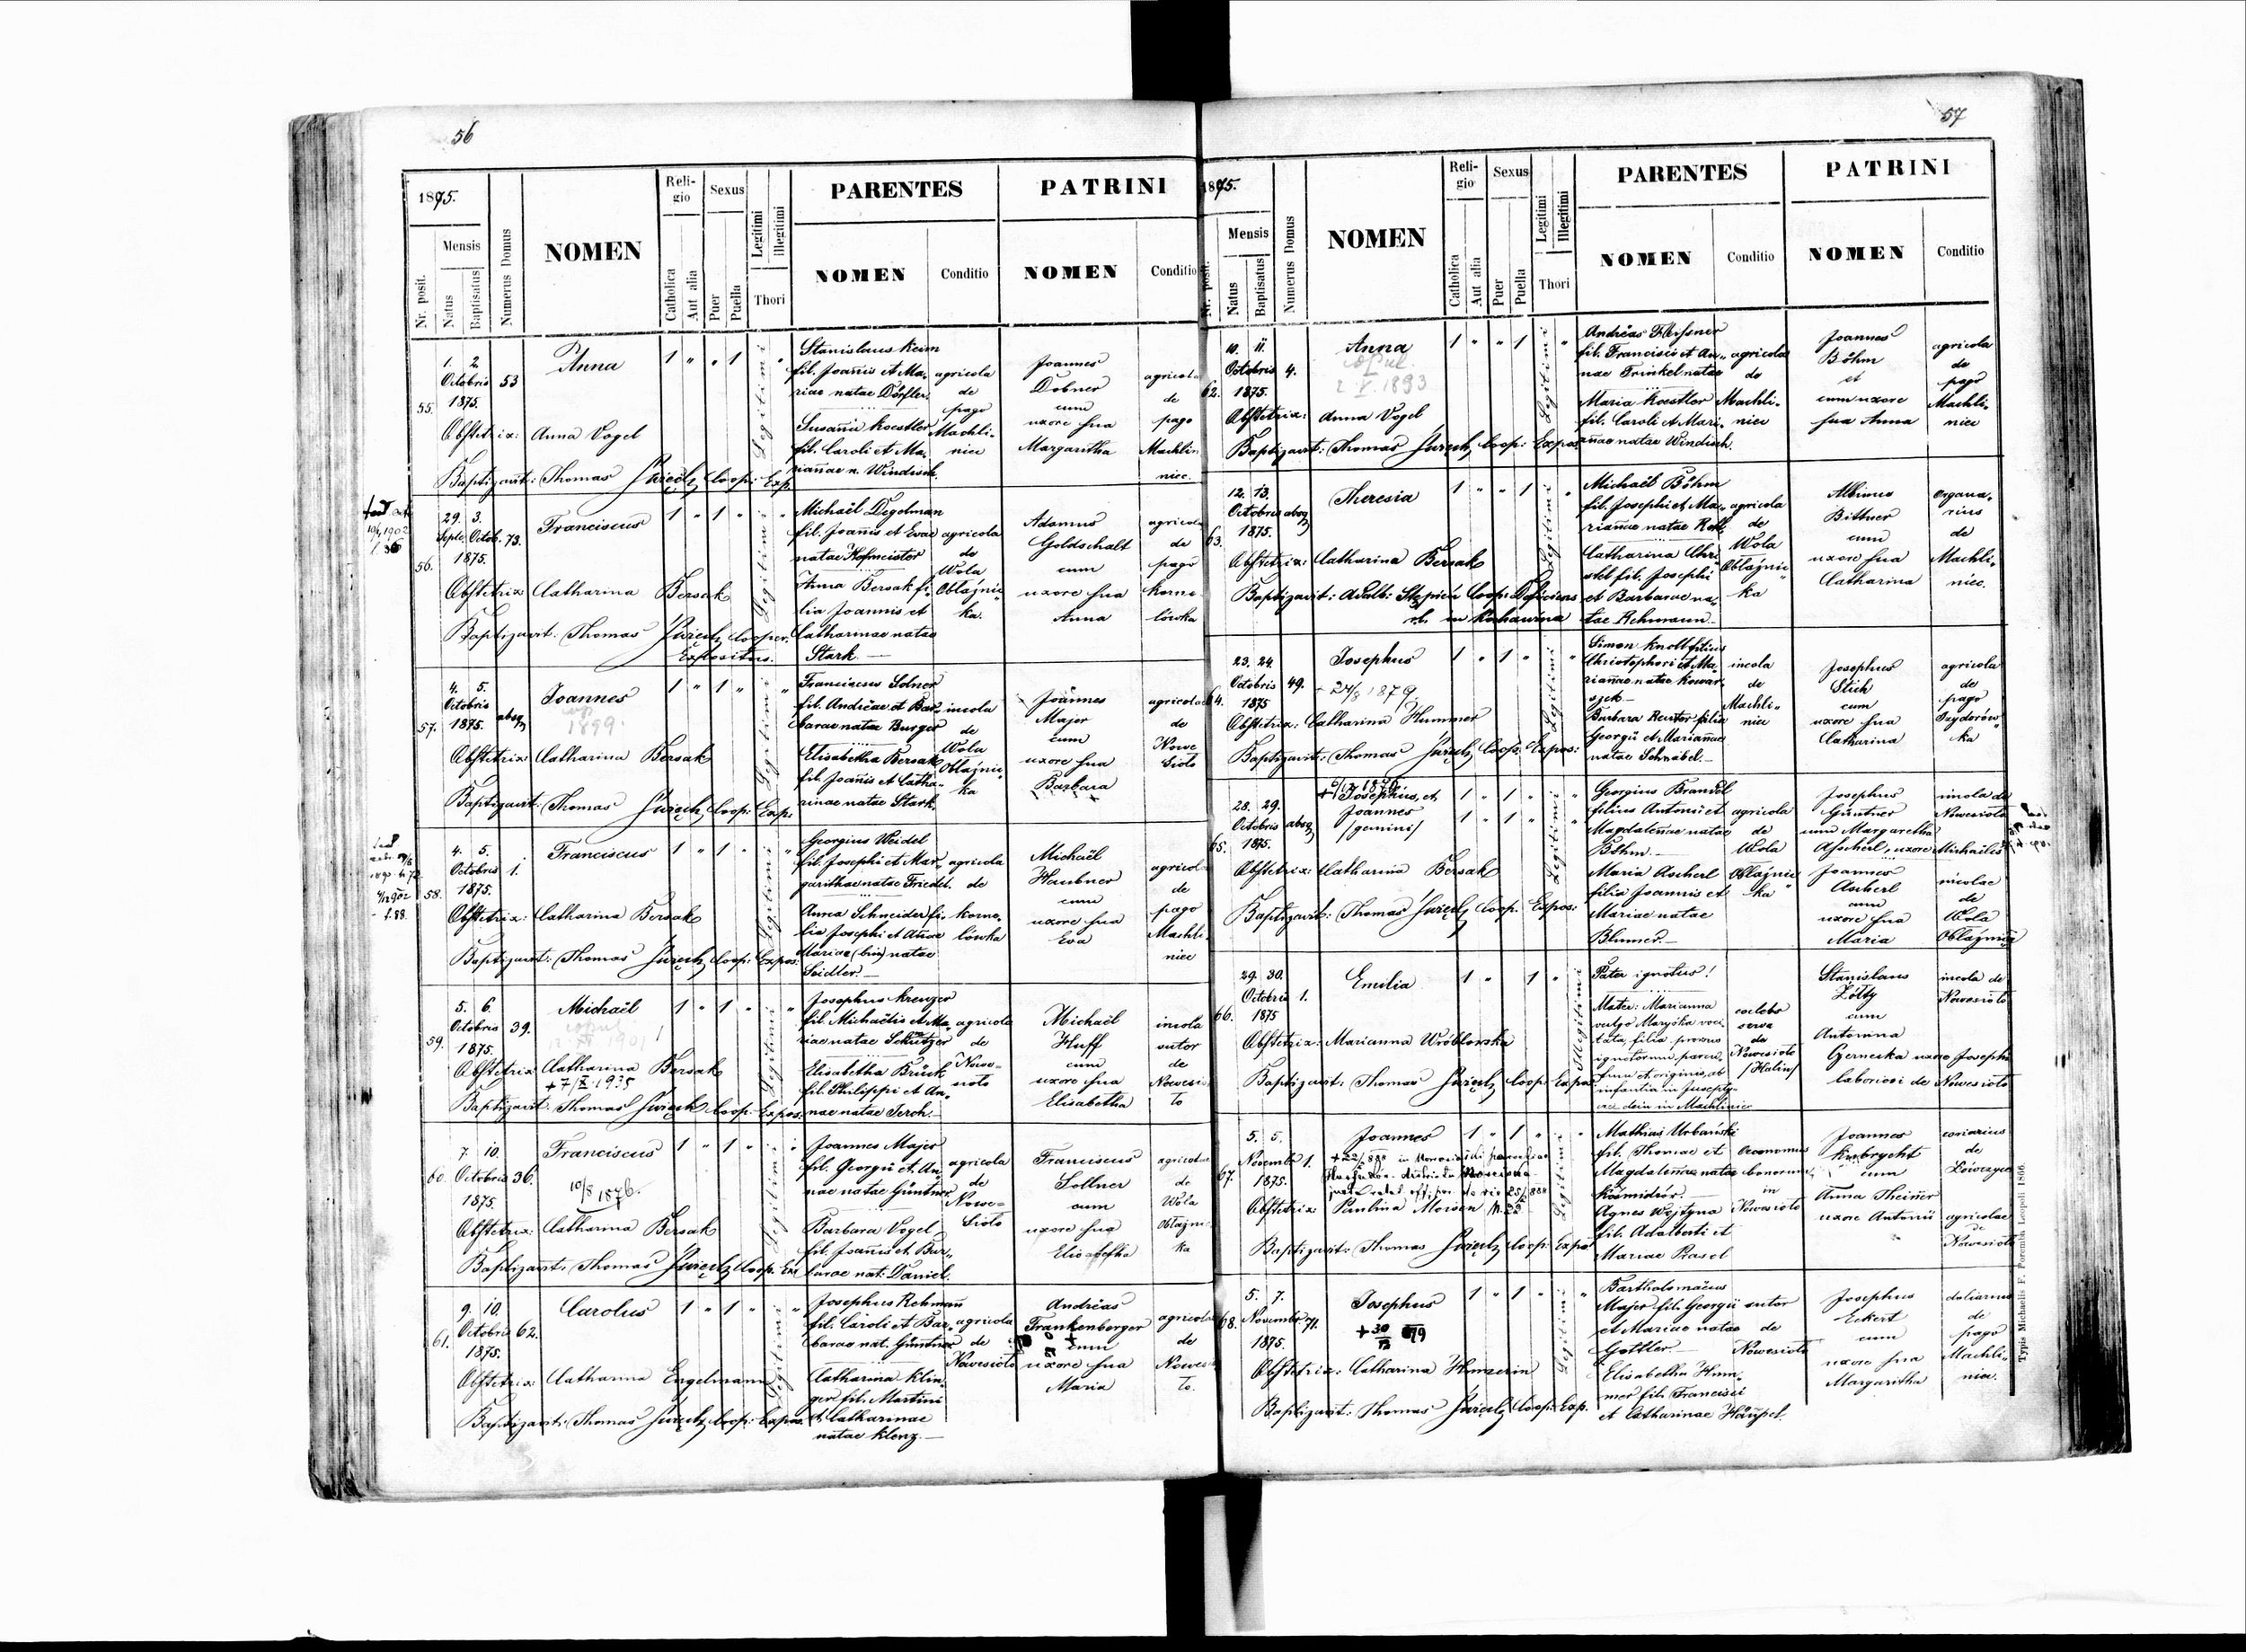 56
1875.
Nr. posit.
Mensis
Natus
Baptisatus
Numerus Domus
NOMEN
Reli-
gio
Catholica
Aut alia
Sexus
Puer
Puella
Legitimi
Illegitimi
Thori
PARENTES
NOMEN
Conditio
PATRINI
NOMEN
Conditio
55.
1. 2.
Octobris
1875.
53
Anna
1 " " 1
Legitimi
Stanislaus Keim
fil. Joannis et Ma-
riae natae Dörfler.
Susanna Koestler
fil. Caroli et Ma-
riannae n. Windisch.
agricola
de
pago
Machli-
niec
Joannes
Dobner
cum
uxore sua
Margaritha
agricola
de
pago
Machli
niec.
Obstetrix: Anna Vogel
Baptizavit: Thomas Coop. Exp.
56.
29. 3.
Septe. Octob.
1875.
73.
Franciscus
1 " 1 "
Legitimi
Michaël Degelman
fil. Joannis et Evae
natae Hofmeister
Anna Bersak fi-
lia Joannis et
Catharinae natae
Stark.
agricola
de
Wola
Obłaźnic-
ka.
Adamus
Goldschalt
cum
uxore sua
Anna
agricola
de
pago
Korne
lówka
Obstetrix Catharina Bersak
Baptizavit: Thomas Cooper.
Expositus.
57.
4. 5.
Octobris
1875.
absq
Joannes
1899.
1 " 1 "
Legitimi
Franciscus Solner
fil. Andreae et Bar-
barae natae Burger
Elisabetha Bersak
fil. Joannis et Catha-
rinae natae Stark.
incola
de
Wola
Obłaźnic-
ka
Joannes
Major
cum
uxore sua
Barbara
agricola
de
Nowe
Sioło
Obstetrix Catharina Bersak
Baptizavit: Thomas Coop. Exp.
58.
4. 5.
Octobris
1875.
1.
Franciscus
1 " 1 "
Legitimi
Georgius Weidel
fil. Josephi et Mar-
garithae natae Friedel.
Anna Schneider fi-
lia Josephi et Annae
Mariae (bin) natae
Seidler.
agricola
de
Korne-
lówka
Michaël
Haubner
cum
uxore sua
Eva
agricola
de
pago
Machli-
niec
Obstetrix: Catharina Bersak
Baptizavit: Thomas Coop. Expos.
59.
5. 6.
Octobris
1875.
39.
Michaël
1 " 1 "
Legitimi
Josephus Kreuzer
fil. Michaëlis et Ma-
riae natae Schützer
Elisabetha Brück
fil. Philippi et An-
nae natae Serch.
agricola
de
Nowe-
sioło
Michaël
Huff
cum
uxore sua
Elisabetha
incola
sutor
de
Nowesio
ło
Obstetrix Catharina Bersak
+7/X 1935
Baptizavit: Thomas Coop. Expos.
60.
7. 10.
Octobris
1875.
36.
Franciscus
10/8 1876.
1 " 1 "
Legitimi
Joannes Major
fil. Georgii et An-
nae natae Güntner
Barbara Vogel
fil. Joannis et Bar-
barae nat: Daniel.
agricola
de
Nowe-
Sioło
Franciscus
Sollner
cum
uxore sua
Elisabetha
agricola
de
Wola
Obłaźnic
ka
Obstetrix: Catharina Bersak
Baptizavit: Thomas Coop. Exp
61.
9. 10.
Octobris
1875.
62.
Carolus
1 " 1 "
Legitimi
Josephus Rehmann
fil. Caroli et Bar-
barae nat. Güntner
Catharina Klin-
ger fil. Martini
et Catharinae
natae Klenz.
agricola
de
Nowesioło
Andreas
Frankenberger
cum
uxore sua
Maria
agricola
de
Nowesio
ło.
Obstetrix: Catharina Engelmann
Baptizavit: Thomas Coop. Expos.
57
1875.
Nr. posit.
Mensis
Natus
Baptisatus
Numerus Domus
NOMEN
Reli-
gio
Catholica
Aut alia
Sexus
Puer
Puella
Legitimi
Illegitimi
Thori
PARENTES
NOMEN
Conditio
PATRINI
NOMEN
Conditio
62.
10. 11.
Octobris
1875.
4.
Anna
copul.
2. V. 1893
1 " " 1
Legitimi
fil. Francisci et An-
nae Trinkel natae
Maria Koestler
fil. Caroli et Mari-
annae natae Windisch.
agricola
de
Machli-
niec
Joannes
Böhm
et
cum uxore
sua Anna
agricola
de
pago
Machli-
niec
Obstetrix: Anna Vogel
Baptizavit: Thomas Coop: Expos.
63.
12. 13.
Octobris
1875.
absq
Theresia
1 " " 1
Legitimi
Michaël Böhm
fil. Josephi et Ma-
riannae natae
Catharina Chri-
stel fil. Josephi
et Barbarae na-
tae Rehmann.
agricola
de
Wola
Obłaźnic-
ka
Albinus
Bittner
cum
uxore sua
Catharina
organa-
rius
de
Machli-
niec.
Obstetrix: Catharina Bersak
Baptizavit: Adalb: Coop: Deficiens
64.
23. 24
Octobris
1875
49.
Josephus
1879.
1 " 1 "
Legitimi
Simon Knott filius
Christophori et Ma-
riannae natae Kowar-
szek
Barbara Reuter filia
Georgii et Mariannae
natae Schnabel.
incola
de
Machli-
niec
Josephus
Stich
cum
uxore sua
Catharina
agricola
de
pago
Izydorów-
ka
Obstetrix: Catharina Hummer
Baptizavit: Thomas Coop. Expos:
65.
28. 29.
Octobris
1875.
absq
Josephus, et
Joannes
/gemini/
1 " 1 "
1 " 1 "
Legitimi
Georgius Brandl
filius Antonii et
Magdalenae natae
Böhm.
Maria Ascherl
filia Joannis et
Mariae natae
Blumer.
agricola
de
Wola
Obłaźnic
ka
Josephus
Güntner
cum Margaretha
Ascherl, uxore Michaëlis
Joannes
Ascherl
cum
uxore sua
Maria
incola de
Nowesioło
incolae
de
Wola
Obłaźnica
Obstetrix: Catharina Bersak
Baptizavit: Thomas Coop. Expos:
66.
29. 30.
Octobris
1875
1.
Emilia
1 " 1 "
Illegitimi
Pater ignotus!
Mater: Marianna
vulgo Maryśka voci-
tata, filia prorsus
ignotorum paren-
tum et originis, ab
infantia in
dein in Machliniec
coelebs
serva
de
Nowesioło
/Halin/
Stanislaus
Żółty
cum
Antonina
Gerneska uxore Josephi
laboriosi de Nowesioło
incola de
Nowesioło
Obstetrix: Marianna Wróblewska
Baptizavit: Thomas Coop: Expos
67.
5. 5.
Novembr
1875.
1.
Joannes
1 " 1 "
Legitimi
Mathias Urbański
fil. Thomae et
Magdalenae natae
Agnes Wojtyna
fil. Adalberti et
Mariae Prasel
Oeconomus
bonorum
in
Nowesioło
Joannes
cum
Anna Theiner
uxore Antonii
coriarius
de
agricolae
de
Nowesioło
Obstetrix Paulina Moisen
Baptizavit: Thomas Coop: Expos
68.
5. 7.
Novembr
1875.
71.
Josephus
1 " 1 "
Legitimi
Bartholomaeus
Major fil. Georgii
et Mariae natae
Gottler
Elisabetha Hum-
mer fil. Francisci
et Catharinae Häupel.
sutor
de
Nowesioło
Josephus
Eckert
cum
uxore sua
Margaritha
doliarius
de
pago
Machli-
niec.
Obstetrix: Catharina
Baptizavit: Thomas Coop. Exp.
Typis Michaelis F. Poremba Leopoli 1866.